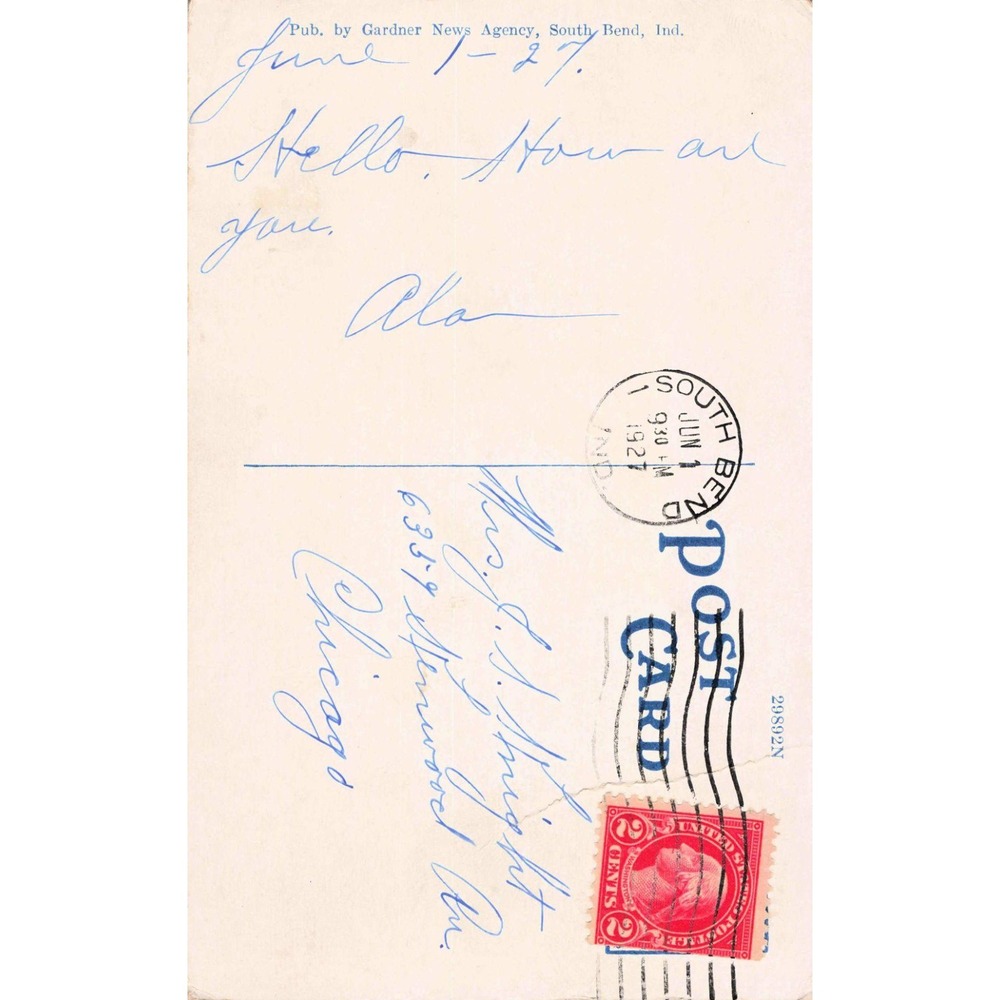 Pub. by Gardner News Agency, South Bend, Ind.
June 1-27.
Hello. How are
you.
SOUTH BEND
IND.
JUN 1
930
1927
1
POST
CARD
29892N
Mrs. J. S.
6359 Kenwood Av.
Chicago
UNITED STATES POSTAGE
2 CENTS 2